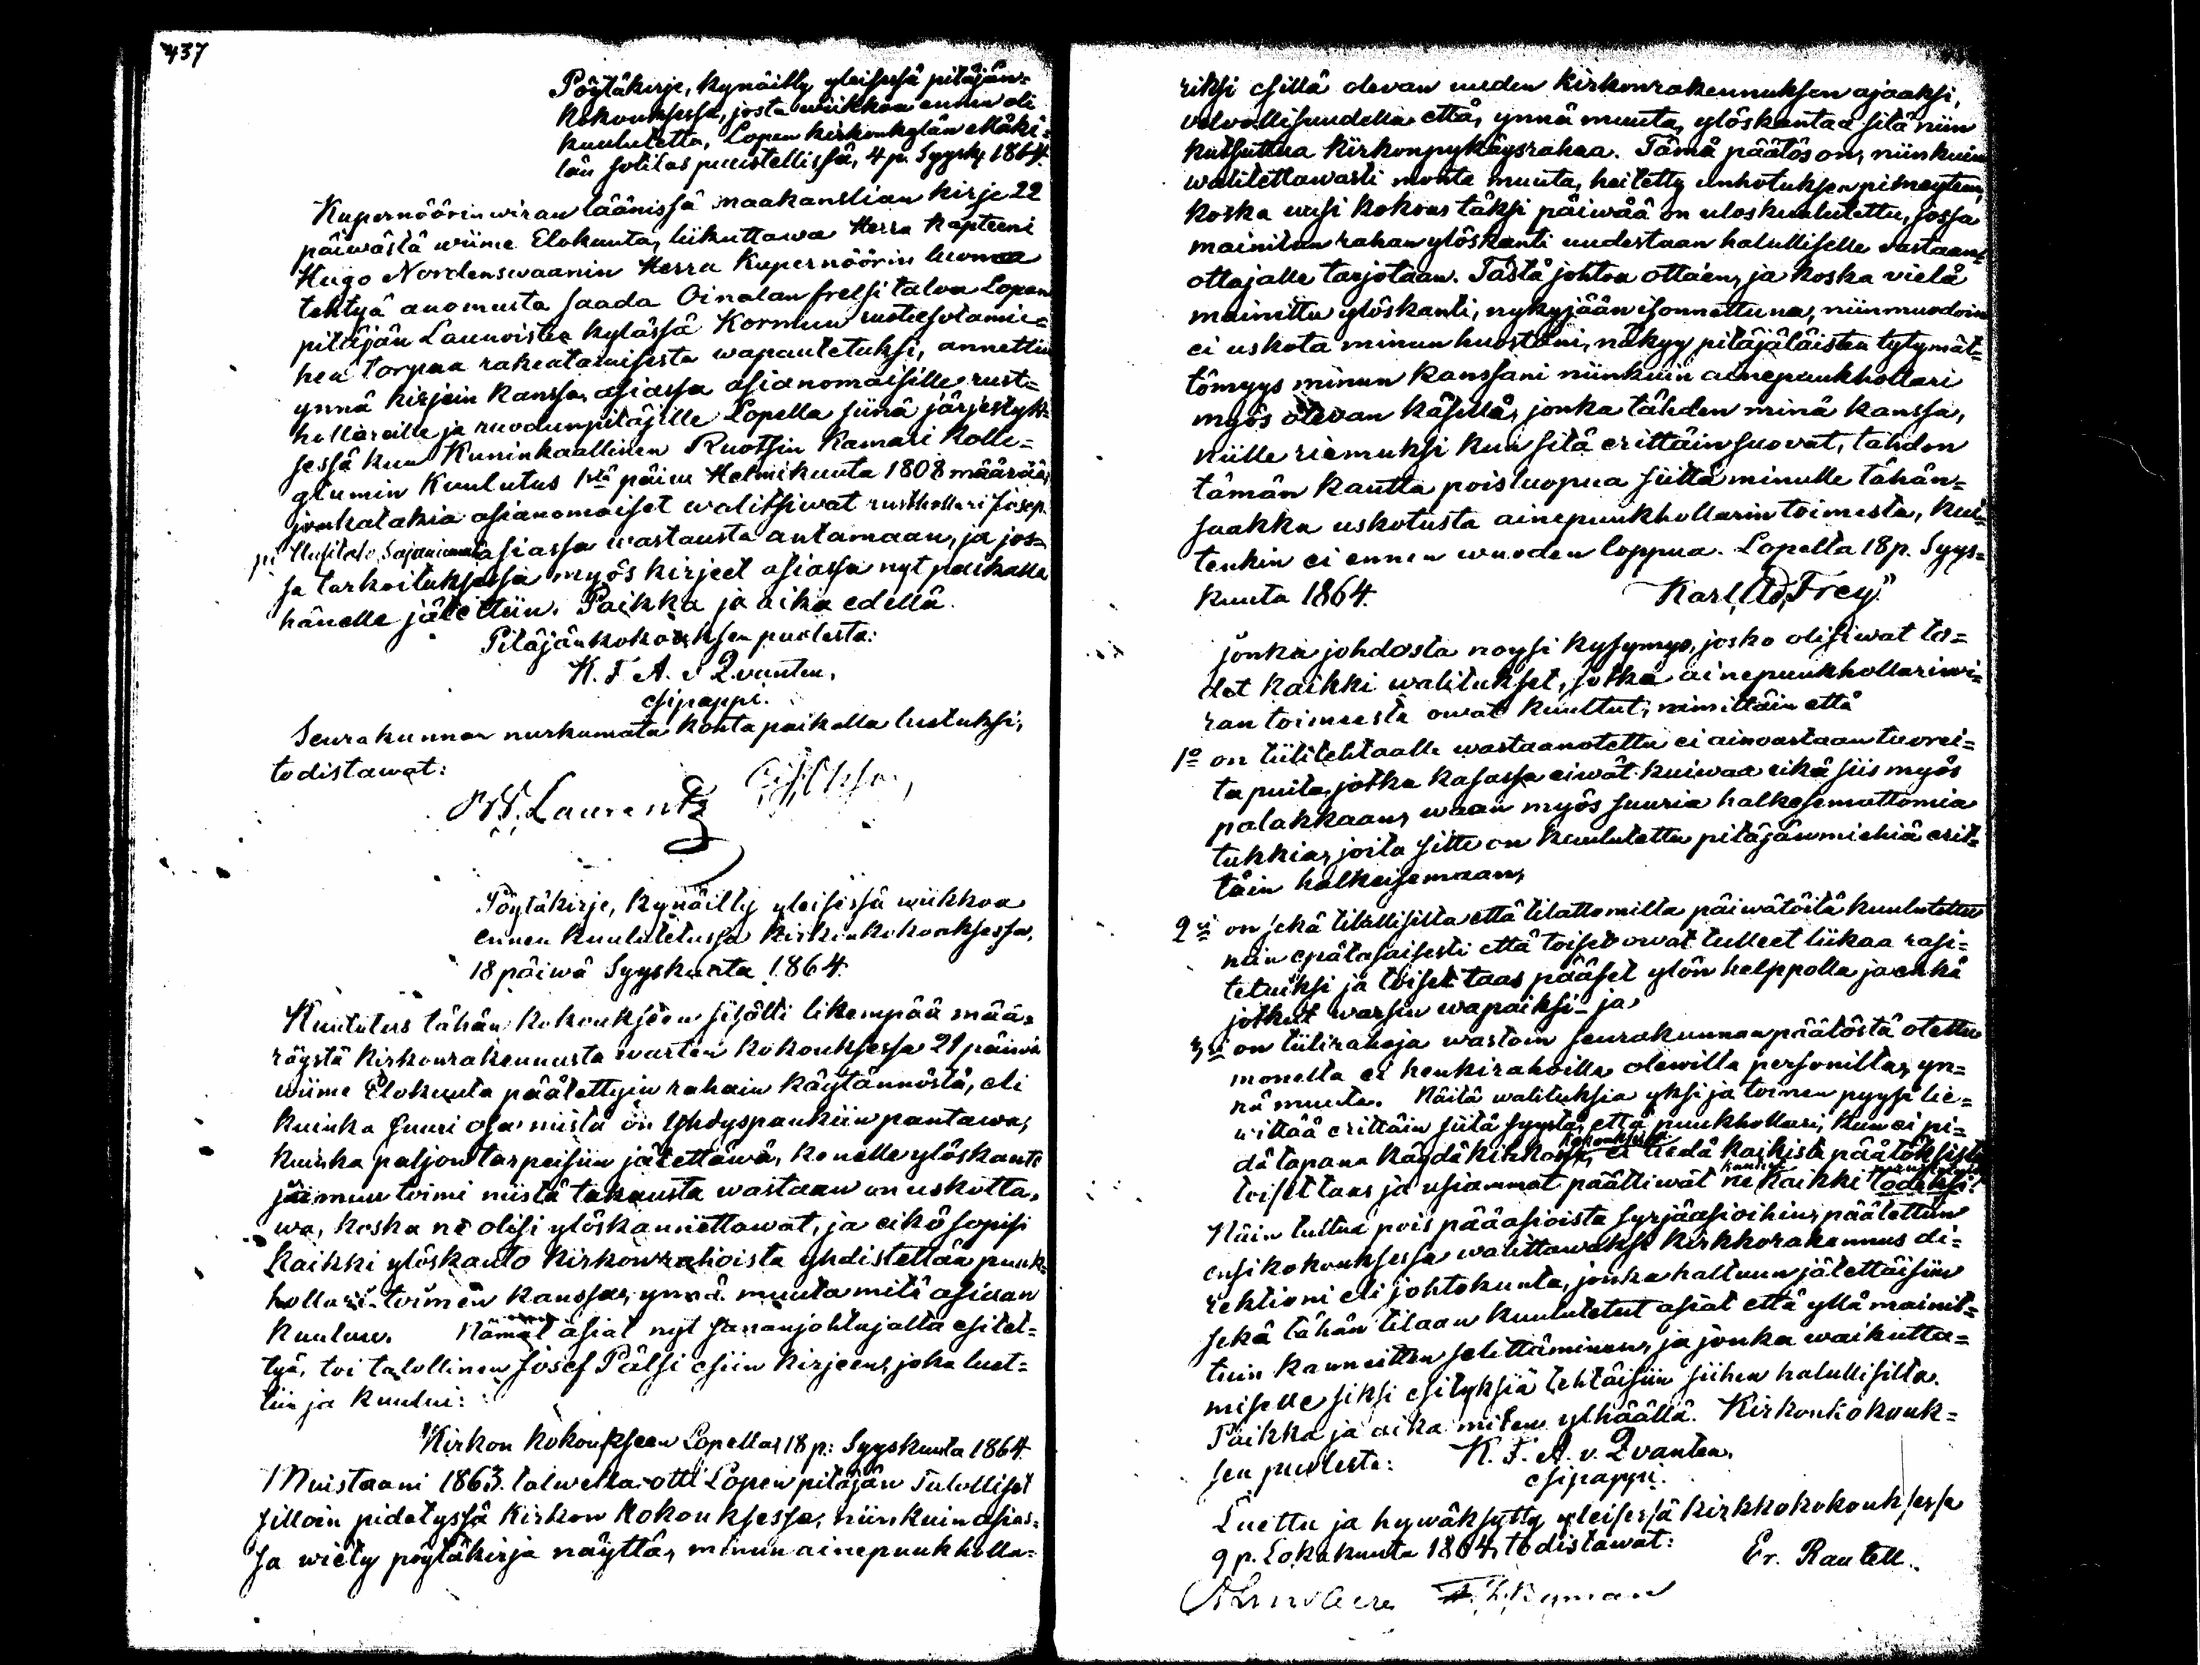 437
Pöytäkirje, kynäilty yleisessä pitäjän-
kokouksessa, josta wiikkoa ennen oli
kuulutettu, Lopen kirkonkylän Mäki-
län sotilas puustellissä, 4 p. Syysk. 1864.
Kupernöörinwiran läänissä maakanslian kirje 22
päiwästä wiime Elokuuta, liikuttawa Herra Kapteeni
Hugo Nordenswaanin Herra Kupernöörin luona
tehtyä anomusta saada Oinalan frelsi taloa Lopen
pitäjän Launoisten kylässä Kormun rustisotamie-
hen torpan rakentamisesta wapautetuksi, annettiin
ynnä kirjein kanssa, asiassa asianomaisille rust-
hollareille ja ruodunpitäjille Lopella siinä järjestyk-
sessä kun Kuninkaallinen Ruotsin Kamari Kolle-
giumin Kuulutus 1stä päiwä Helmikuuta 1808 määrää,
jonkatakia asianomaiset walitsiwat rusthollari Josep-
pi asiassa wastausta antamaan, ja jos-
sa tarkoituksessa myös kirjeet asiassa nyt paikalla
hänelle jätettiin. Paikka ja aika edellä.
Pitäjänkokouksen puolesta:
K. F. A. v Qvanten,
esipappi.
Seurakunnan nurkumata kohta paikalla luetuksi,
todistawat:
Laurentz
Pöytäkirje, kynäilty yleisessä wiikkoa
ennen kuulutetussa kirkonkokouksessa,
18 päiwä Syyskuuta 1864.
Kuulutus tähän kokoukseen sisälti likempää mää-
räystä kirkonrakennusta warten kokouksessa 21 päiwä
wiime Elokuuta päätettyin rahain käytännöstä, eli
kuinka suuri osa niistä on Yhdyspankiin pantawa,
kuinka paljon tarpeisiin jätettäwä, kenelle ylöskanto
ja muu toimi niistä takausta wastaan on uskotta-
wa, koska ne olisi ylöskannettawat, ja eikö sopisi
kaikki ylöskanto kirkonrahoista yhdistettää puuk-
hollari-toimen kanssa, ynnä muuta mitä asiaan
kuuluu. Nämät asiat nyt sananjohtajalta esitet-
tyä, toi talollinen Josef Pälsi esiin kirjeen, joka luet-
tiin ja kuului:
"Kirkon kokoukseen Lopella, 18 p: Syyskuuta 1864.
Muistaani 1863. talwella otti Lopen pitäjän Talolliset
silloin pidetyssä Kirkon kokouksessa, niinkuin asias-
sa wiety pöytäkirja näyttä, minun ainepuukholla-
riksi esillä olevan uuden kirkonrakennuksen ajaaksi,
velvollisuudella että, ynnä muuta, ylöskantaa sitä niin
kutsuttua kirkonpykäysrahaa. Tämä päätös on, niinkuin
walitettawasti monta muuta, heitetty unhotuksen pimeyteen,
koska uusi kokous täksi päiwää on uloskuulutettu, jossa
mainitun rahan ylöskanti uudestaan halulliselle vastaan-
ottajalle tarjotaan. Tästä johtoa ottaen, ja koska vielä
mainittu ylöskanti, nykyjään isonnettuna, niinmuodoin
ei uskota minun huostani, näkyy pitäjäläisten tytymät-
tömyys minun kanssani niinkuin ainepuukhollari
myös olevan käsillä, jonka tähden minä kanssa,
niille riemuksi kun sitä erittäin suovat, tahdon
tämän kautta poisluopua siitä minulle tähän-
saakka uskotusta ainepuukhollarin toimesta, kui-
tenkin ei ennen wuoden loppua. Lopella 18 p. Syys-
kuuta 1864. Karl Ad. Frey."
Jonka johdosta noysi kysymys, josko olisiwat to-
det kaikki walitukset, jotka ainepuukhollarinwi-
ran toimesta owat kuullut, nimittäin että
1o on tiilitehtaalle wastaanotettu ei ainoastaan tuorei-
ta puita, jotka kasassa eiwät kuiwaa eikä siis myös
palakkaan, waan myös suuria halkesemattomia
tukkia, joita sitte on kuulutettu pitäjänmiehiä erit-
täin halkaisemaan,
2si on sekä tilallisilta että tilattomilta päiwätöitä kuulutettu
niin epätasaisesti että toiset owat tulleet liikaa rasi-
tetuiksi ja toiset taas pääset ylön helpolla ja enkä
jotkut warsin wapaiksi - ja
3si on tiilirahoja wastoin seurakunnan päätöstä otettu
monella ei henkirahoilla olewilta personilta, yn-
nä muuta. Näitä walituksia yksi ja toinen pyysi lie-
wittää erittäin siitä syystä, että puukhollari, kun ei pi-
dä tapana käydä kirkon kokouksissa, ei tiedä kaikista päätöksistä
toiset taas ja usiammat päättiwät ne kaikki todeksi.
Näin tultua pois pääasioista syrjäasioihin, päätettiin
ensikokouksessa walittawaksi kirkkorakennus di-
rektioni eli johtokunta, jonka haltuun jätettäisiin
sekä tähän tilaan kuulutetut asiat että yllä mainit-
tuin kanneitten selittäminen, ja jonka waikutta-
miselle siksi esityksiä tehtäisiin siihen halullisilta.
Paikka ja aika miten ylhäällä. Kirkonkokouk-
sen puolesta: K. F. A. v. Qvanten.
esipappi.
Luettu ja hywäksytty yleisessä kirkkokokouksessa
9 p. Lokakuuta 1864, todistawat: Er. Rautell.